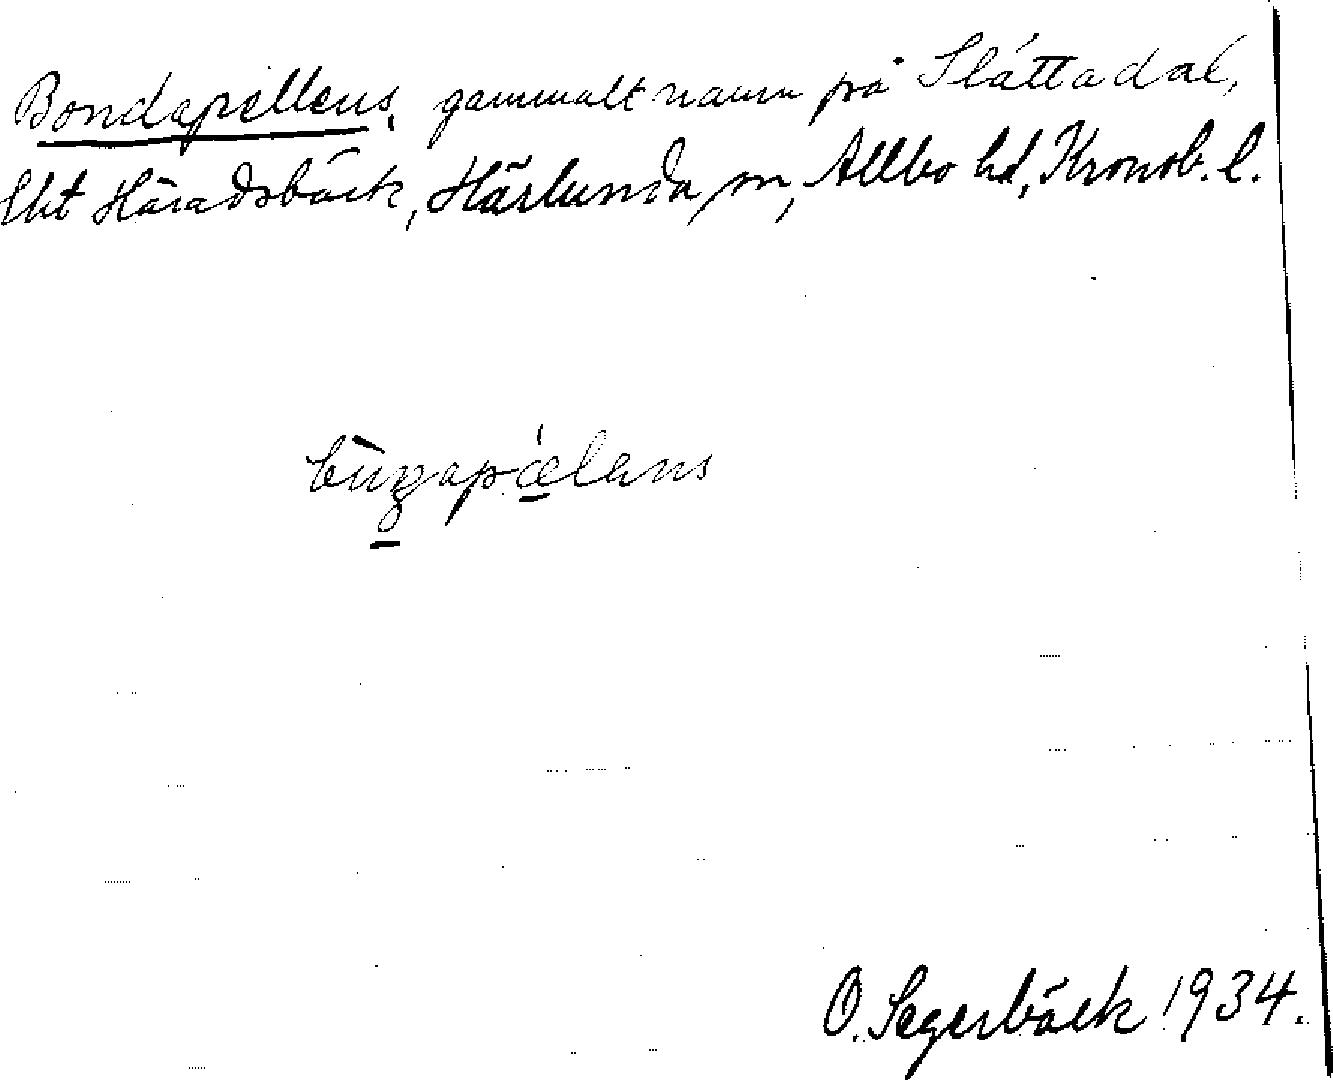 Bondapellens, gammalt namn på Slättadal,
lht Häradsbäck, Härlunda sn, Allbo hd, Kronob. l.
O. Sagerbäck 1934.